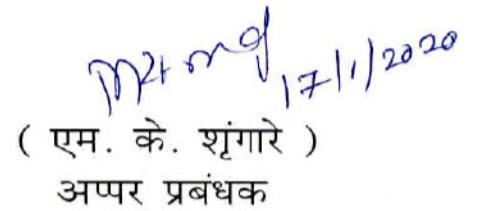 17/1/2020
( एम. के. शृंगारे )
अप्पर प्रबंधक